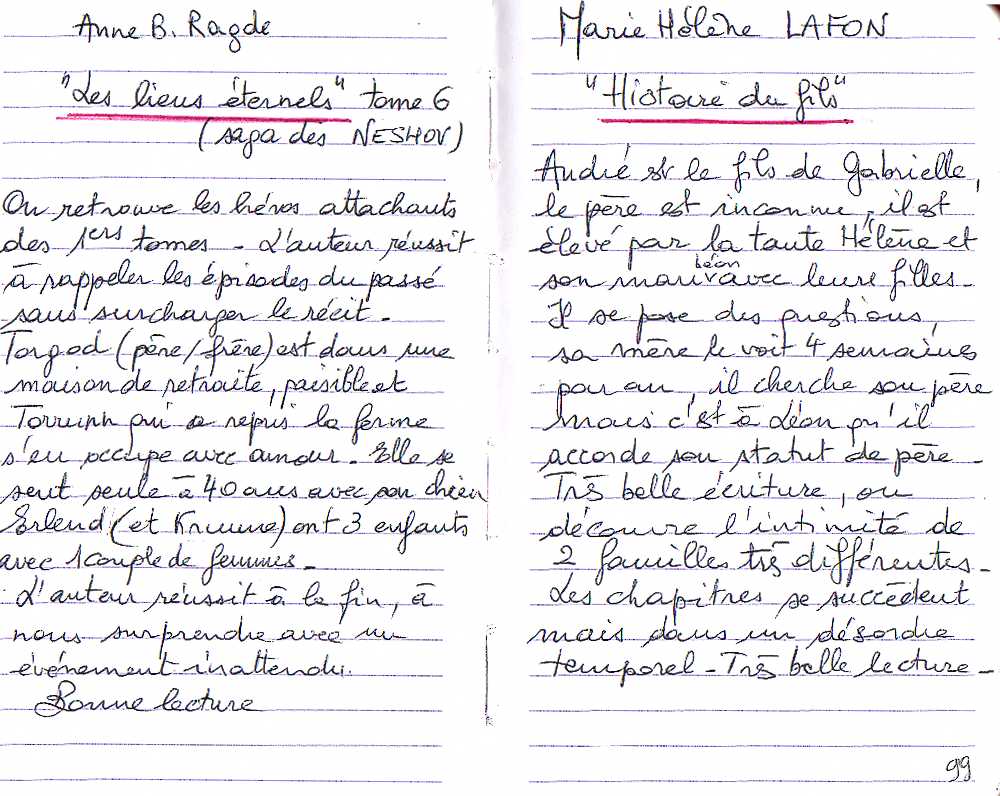 Anne B. Ragde
"Les liens éternels" tome 6
(saga des NESHOV)
On retrouve les héros attachants
des 1ers tomes - L'auteur réussit
à rappeler les épisodes du passé
sans surcharger le récit.
Torgod (père/frère) est dans une
maison de retraite, paisible et
Torunn qui a repris la ferme
s'en occupe avec amour. Elle se
sent seule à 40 ans avec son chien
Erlend (et Krumme) ont 3 enfants
avec 1 couple de femmes -
L'auteur réussit à la fin, à
nous surprendre avec un
événement inattendu.
Bonne lecture
Marie Hélène LAFON
"Histoire du fils"
André est le fils de Gabrielle,
le père est inconnu, il est
élevé par la tante Hélène et
son mari Léon avec leurs filles -
Il se pose des questions,
sa mère le voit 4 semaines
par an, il cherche son père
mais c'est à Léon qu'il
accorde son statut de père -
Très belle écriture, on
découvre l'intimité de
2 familles très différentes -
Les chapitres se succèdent
mais dans un désordre
temporel - Très belle lecture -
99